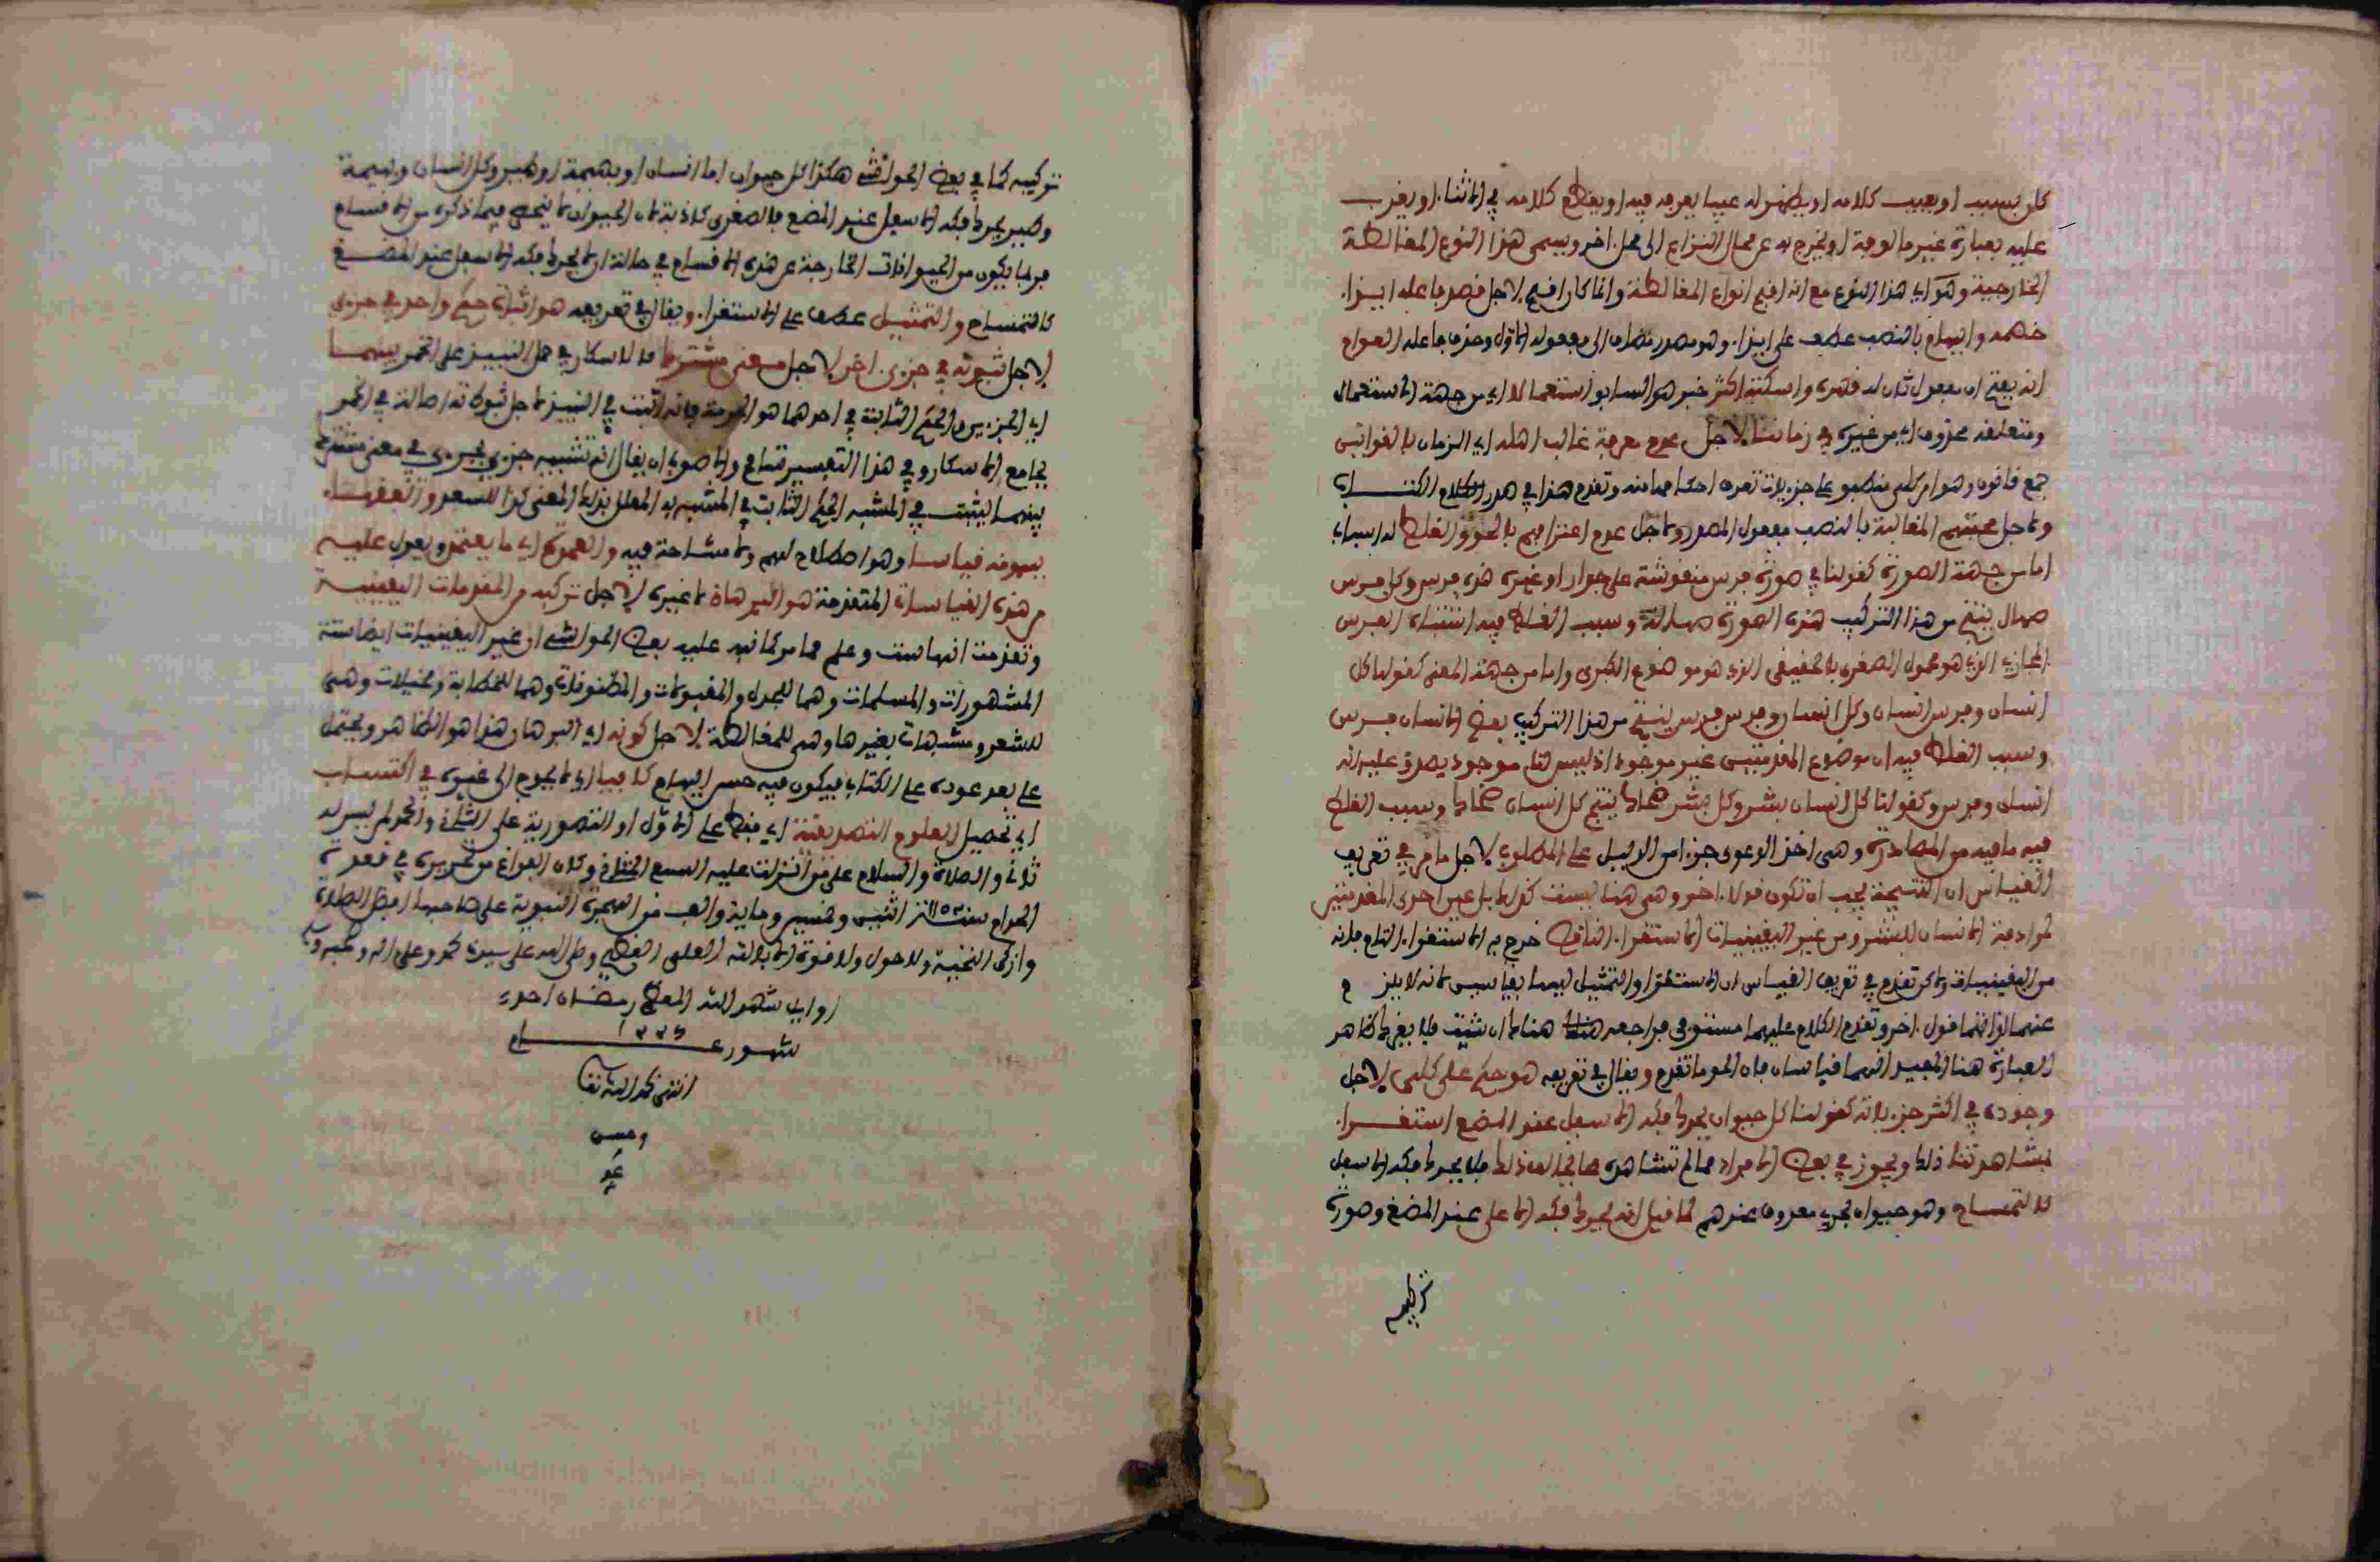 كان يسبب او يعيب كلامه او يظهر له عيبا يعرفه فيه او يقطع كلامه في الاثناء او يغرب
عليه بعبارة غير مالوفة او يخرج به عن محل النزاع الى محل اخر ويسمى هذا النوع المغالطة
الخارجية وهو اي هذا النوع مع انه اقبح انواع المغالطة وانما كان اقبح لاجل قصد فاعله ايذاء
خصمه وايهام بالنصب عطف على ايذاء وهو مصدر مضاف الى مفعوله الاول وحذف فاعله العوام
انه بفتح ان مفعول ثان له قهره واسكته اكثر خبر هو السابق استعمالا اي من جهة الاستعمال
ومتعلقه محذوف اي من غيره في زماننا لاجل عدم معرفة غالب اهله اي الزمان بالقوانين
جمع قانون وهو امر كلي منطبق على جزئيات تعرف احكامها منه وتقدم هذا في صدر الكتاب
ولاجل محبتهم المغالبة بالنصب مفعول المصدر ولاجل عدم اعترافهم بالحق والغلط له اسباب
اما من جهة الصورة كقولنا في صورة فرس منقوشة على جدار او غيره هذه فرس وكل فرس
صهال ينتج من هذا التركيب هذه الصورة صهالة وسبب الغلط فيه اشتباه الفرس
المجازي الذي هو محمول الصغرى بالحقيقي الذي هو موضوع الكبرى واما من جهة المعنى كقولنا كل
انسان وفرس انسان وكل انسان وفرس فرس ينتج من هذا التركيب بعض الانسان فرس
وسبب الغلط فيه ان موضوع المقدمتين غير موجود اذ ليس لنا موجود يصدق عليه انه
انسان وفرس وكقولنا كل انسان بشر وكل بشر ضحاك ينتج كل انسان ضحاك وسبب الغلط
فيه ما فيه من المصادرة وهي اخذ الدعوى جزءا من الدليل على المطلوب لاجل ما مر في تعريف
القياس ان النتيجة يجب ان تكون قولا اخر وهي هنا ليست كذلك بل عين احدى المقدمتين
لمرادفة الانسان للبشر ومن غير اليقينيات الاستقراء الناقص خرج به الاستقراء التام فانه
من اليقينيات ولاكن تقدم في تعريف القياس ان الاستقراء والتمثيل ليسا بقياسين لانه لا يلزم
عنهما لذاتهما قول اخر وتقدم الكلام عليهما مستوفى فراجعه هناك ان شيت فلا يغرك ظاهر
العبارة هنا المفيد انهما قياسان فان المعول ما تقدم ويقال في تعريفه هو حكم على كلي لاجل
وجوده في اكثر جزئياته كقولنا كل حيوان يحرك فكه الاسفل عند المضغ استقراء
لمشاهدتنا ذلك ويجوز في بعض الافراد مما لم نشاهده ما يخالف ذلك فلا يحرك فكه الاسفل
كالتمساح وهو حيوان بحري معروف عندهم لما قيل انه يحرك فكه الاعلى عند المضغ وصورة
تركيبه
تركيبه كما في بعض الحواشي هكذا كل حيوان اما انسان او بهيمة او طير وكل انسان وبهيمة
وطير يحرك فكه الاسفل عند المضغ فالصغرى كاذبة لان الحيوان لا ينحصر فيما ذكره من الاقسام
فربما يكون من الحيوانات الخارجة عن هذه الاقسام في حالة انه لا يحرك فكه الاسفل عند المضغ
كالتمساح والتمثيل عطف على الاستقراء ويقال في تعريفه هو اثبات حكم واحد في جزءي
لاجل ثبوته في جزءي اخر لاجل معنى مشترك كالاسكار في حمل النبيذ على الخمر بينهما
اي الجزءيين والحكم الثابتة في احدهما هو الحرمة فانه اثبت في النبيذ لاجل ثبوتها اصالة في الخمر
بجامع الاسكار وفي هذا التفسير تسامح والاصوب ان يقال انه تشبيه جزءي بجزءي في معنى مشترك
بينهما ليثبت في المشبه الحكم الثابت في المشبه به المعلل بذلك المعنى كذا للسعد والفقهاء
يسمونه قياسا وهو اصطلاح لهم ولا مشاحة فيه والعمدة اي ما يعتمد ويعول عليه
من هذه القياسات المتقدمة هو البرهان لا غيره لاجل تركبه من المقدمات اليقينية
وتقدمت انها ست وعلم مما مر كما نبه عليه بعض الحواشي ان غير اليقينيات ايضا ستة
المشهورات والمسلمات وهما للجدل والمقبولات والمظنونات وهما للخطابة ومخيلات وهي
للشعر ومشبهات بغيرها وهي للمغالطة لاجل كونه اي البرهان هذا هو الظاهر ويحتمل
على بعد عوده على الكتاب فيكون فيه حسن ايهام كافيا اي لا يحوج الى غيره في اكتساب
اي تحصيل العلوم التصديقية اي فقط على الاول او التصورية على الثاني والحمد لمن ليس له
ثاني والصلاة والسلام على من انزلت عليه السبع المثاني وكان الفراغ من تحريره في قعدة
الحرام سنة ١١٥٢ اثنين وخمسين وماية والف من الهجرة النبوية على صاحبها افضل الصلاة
وازكى التحية ولا حول ولا قوة الا بالله العلي العظيم وصلى الله على سيدنا محمد وعلى اله وصحبه وسلم
اوايل شهر الله المعظم رمضان احد
شهور عام ١٢٢٤
انتهى بحمد الله تعالى
وحسن
عونه